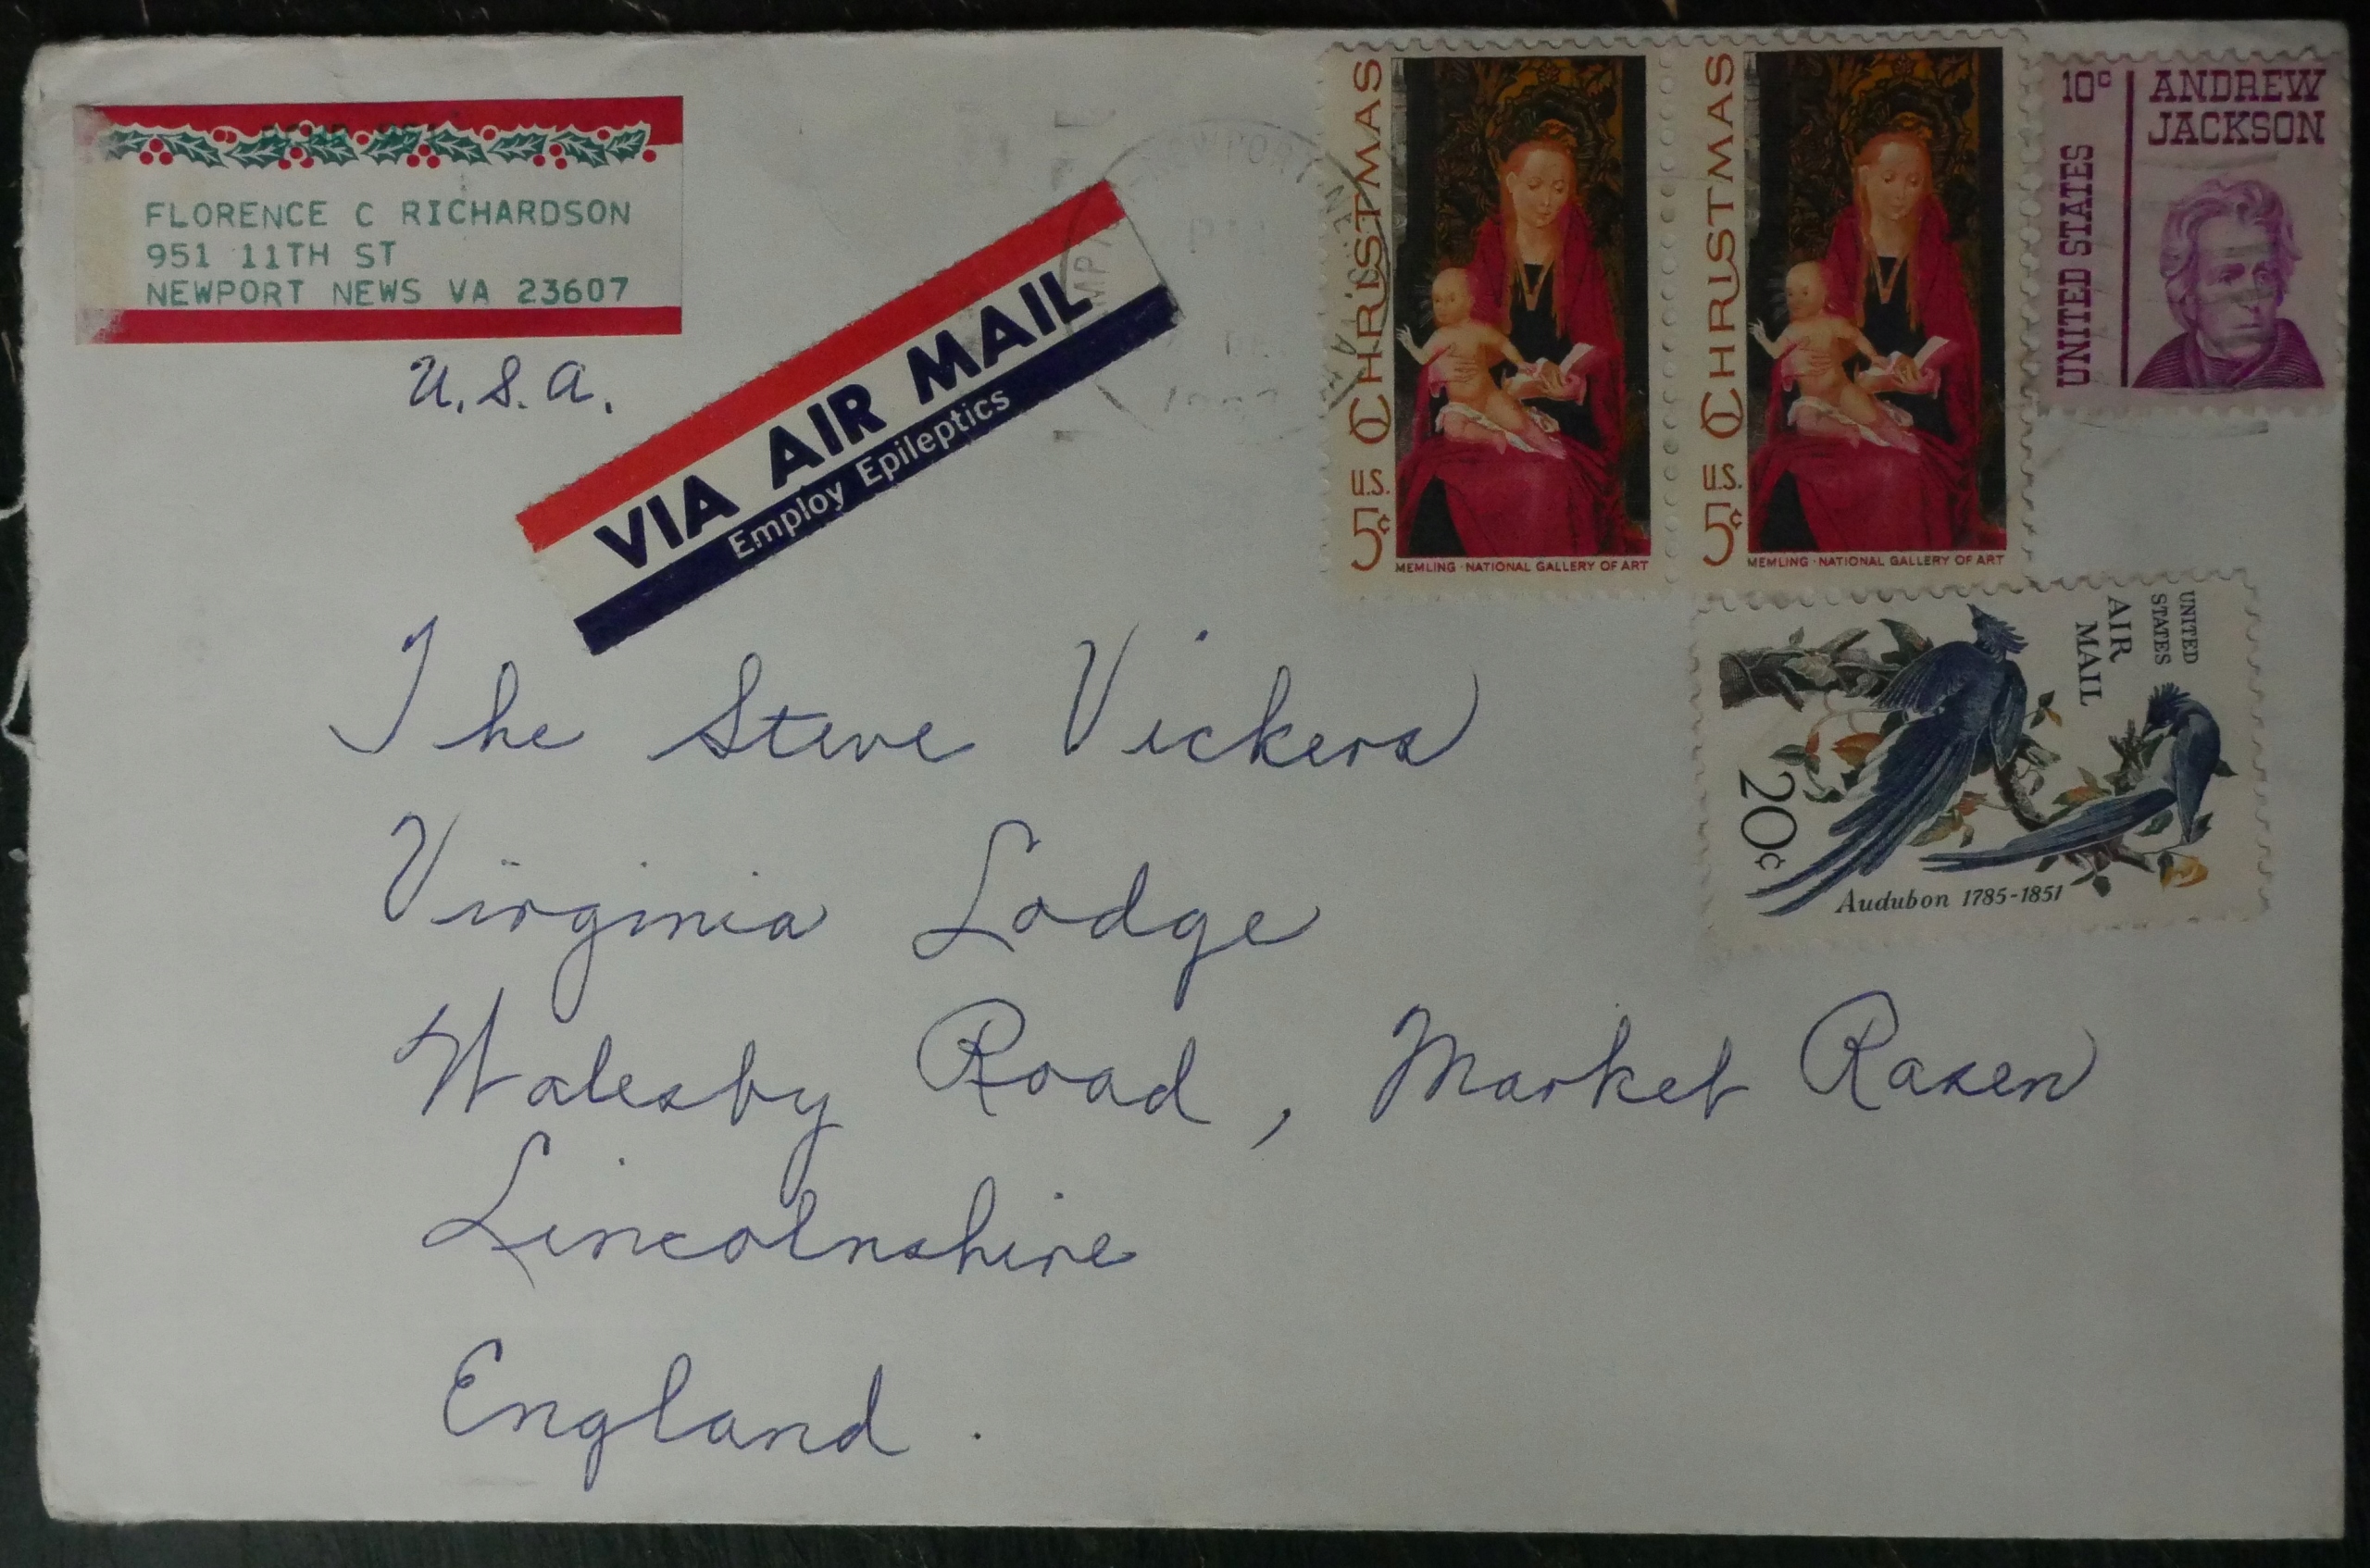 FLORENCE C RICHARDSON
951 11TH ST
NEWPORT NEWS VA 23607
U.S.A.
VIA AIR MAIL
Employ Epileptics
CHRISTMAS
U.S.
5c
MEMLING · NATIONAL GALLERY OF ART
CHRISTMAS
U.S.
5c
MEMLING · NATIONAL GALLERY OF ART
10c
ANDREW
JACKSON
UNITED STATES
UNITED
STATES
AIR
MAIL
20c
Audubon 1785-1851
The Steve Vickers
Virginia Lodge
Walesby Road, Market Rasen
Lincolnshire
England.